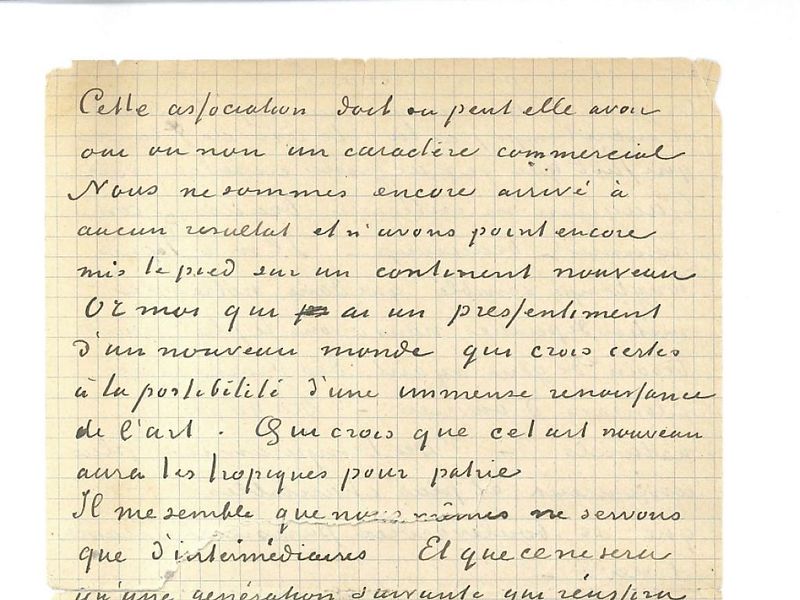 Cette association doit ou peut elle avoir
oui ou non un caractère commercial
Nous ne sommes encore arrivé à
aucun resultat et n'avons point encore
mis le pied sur un continent nouveau
Or moi qui ai un pressentiment
d'un nouveau monde qui crois certes
à la possibilité d'une immense renaissance
de l'art. Qui crois que cet art nouveau
aura les tropiques pour patrie
Il me semble que nous mêmes ne servons
que d'intermédiaires Et que ce ne sera
qu'une génération suivante qui réussira